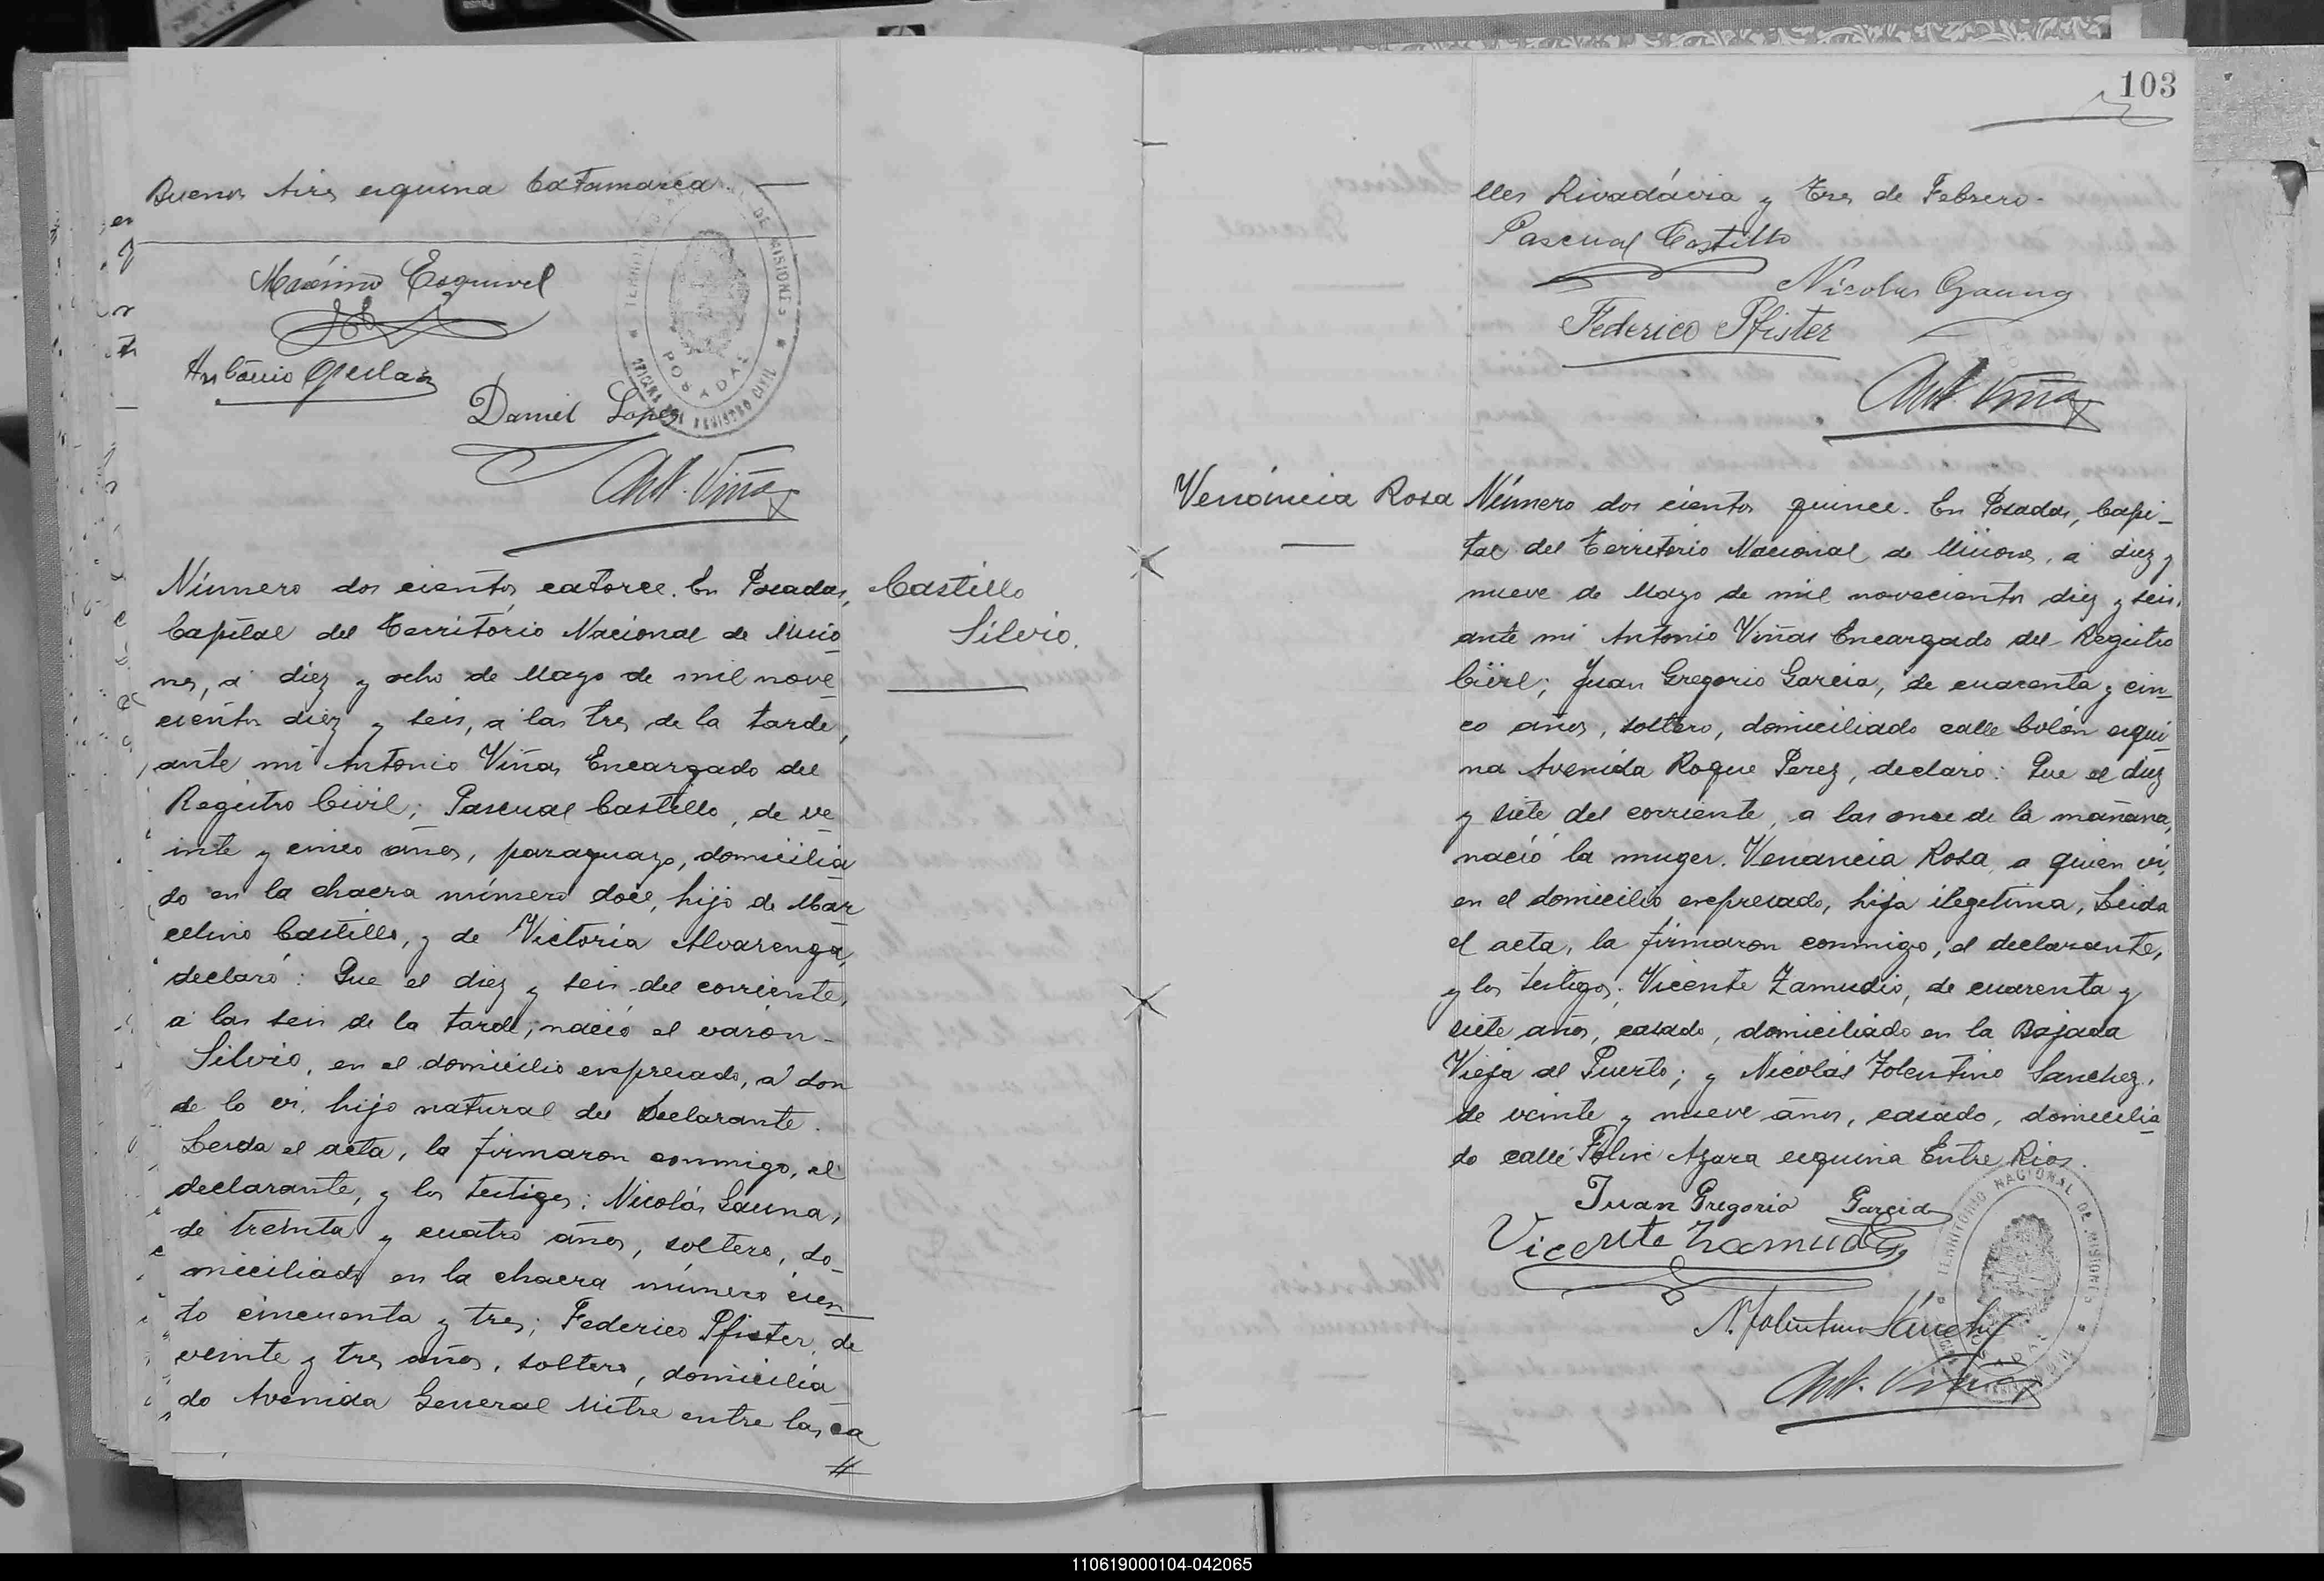 Buenos Aires esquina Catamarca. —
Maximo Esquivel
Antonio
Daniel Lopez
Ant. Viñas
TERRITORIO NACIONAL DE MISIONES
POSADAS
OFICINA DEL REGISTRO CIVIL
Número dos cientos catorce. En Posadas,
Capital del Territorio Nacional de Misio
nes, a diez y ocho de Mayo de mil nove
cientos diez y seis, a las tres de la tarde,
ante mi Antonio Viñas Encargado del
Registro Civil; Pascual Castillo, de ve
inte y cinco años, paraguayo, domicilia
do en la chacra número doce, hijo de Mar
celino Castillo, y de Victoria Alvarenga,
declaró: Que el diez y seis del corriente,
a las seis de la tarde, nació el varón -
Silvio, en el domicilio expresado, a don
de lo vi, hijo natural del declarante.
Leida el acta, la firmaron conmigo, el
declarante, y los testigos: Nicolás Gauna,
de treinta y cuatro años, soltero, do-
miciliado en la chacra número cien
to cincuenta y tres; Federico Pfister, de
veinte y tres años, soltero, domicilia
do Avenida General Mitre entre las ca
//
Castillo
Silvio.
103
lles Rivadávia y Tres de Febrero.
Pascual Castillo
Nicolas Gauna
Federico Pfister
Ant. Viñas
Venáncia Rosa
Número dos cientos quince. En Posadas, Capi-
tal del Territorio Nacional de Misiones, a diez y
nueve de Mayo de mil novecientos diez y seis,
ante mi Antonio Viñas Encargado del Registro
Civil; Juan Gregorio Garcia, de cuarenta y cin
co años, soltero, domiciliado calle Colón esqui
na Avenida Roque Perez, declaró: Que el diez
y siete del corriente, a las once de la mañana,
nació la muger, Venancia Rosa, a quien vi,
en el domicilio expresado, hija ilegitima, Leida
el acta, la firmaron conmigo, el declarante,
y los testigos: Vicente Zamudio, de cuarenta y
siete años, casado, domiciliado en la Bajada
Vieja al Puerto; y Nicolás Tolentino Sanchez,
de veinte y nueve años, casado, domicilia
do calle Felix Azara esquina Entre Rios.
Juan Gregorio Garcia
Vicente Zamudio
N. Tolentino Sánchez
Ant. Viñas
TERRITORIO NACIONAL DE MISIONES
110619000104-042065